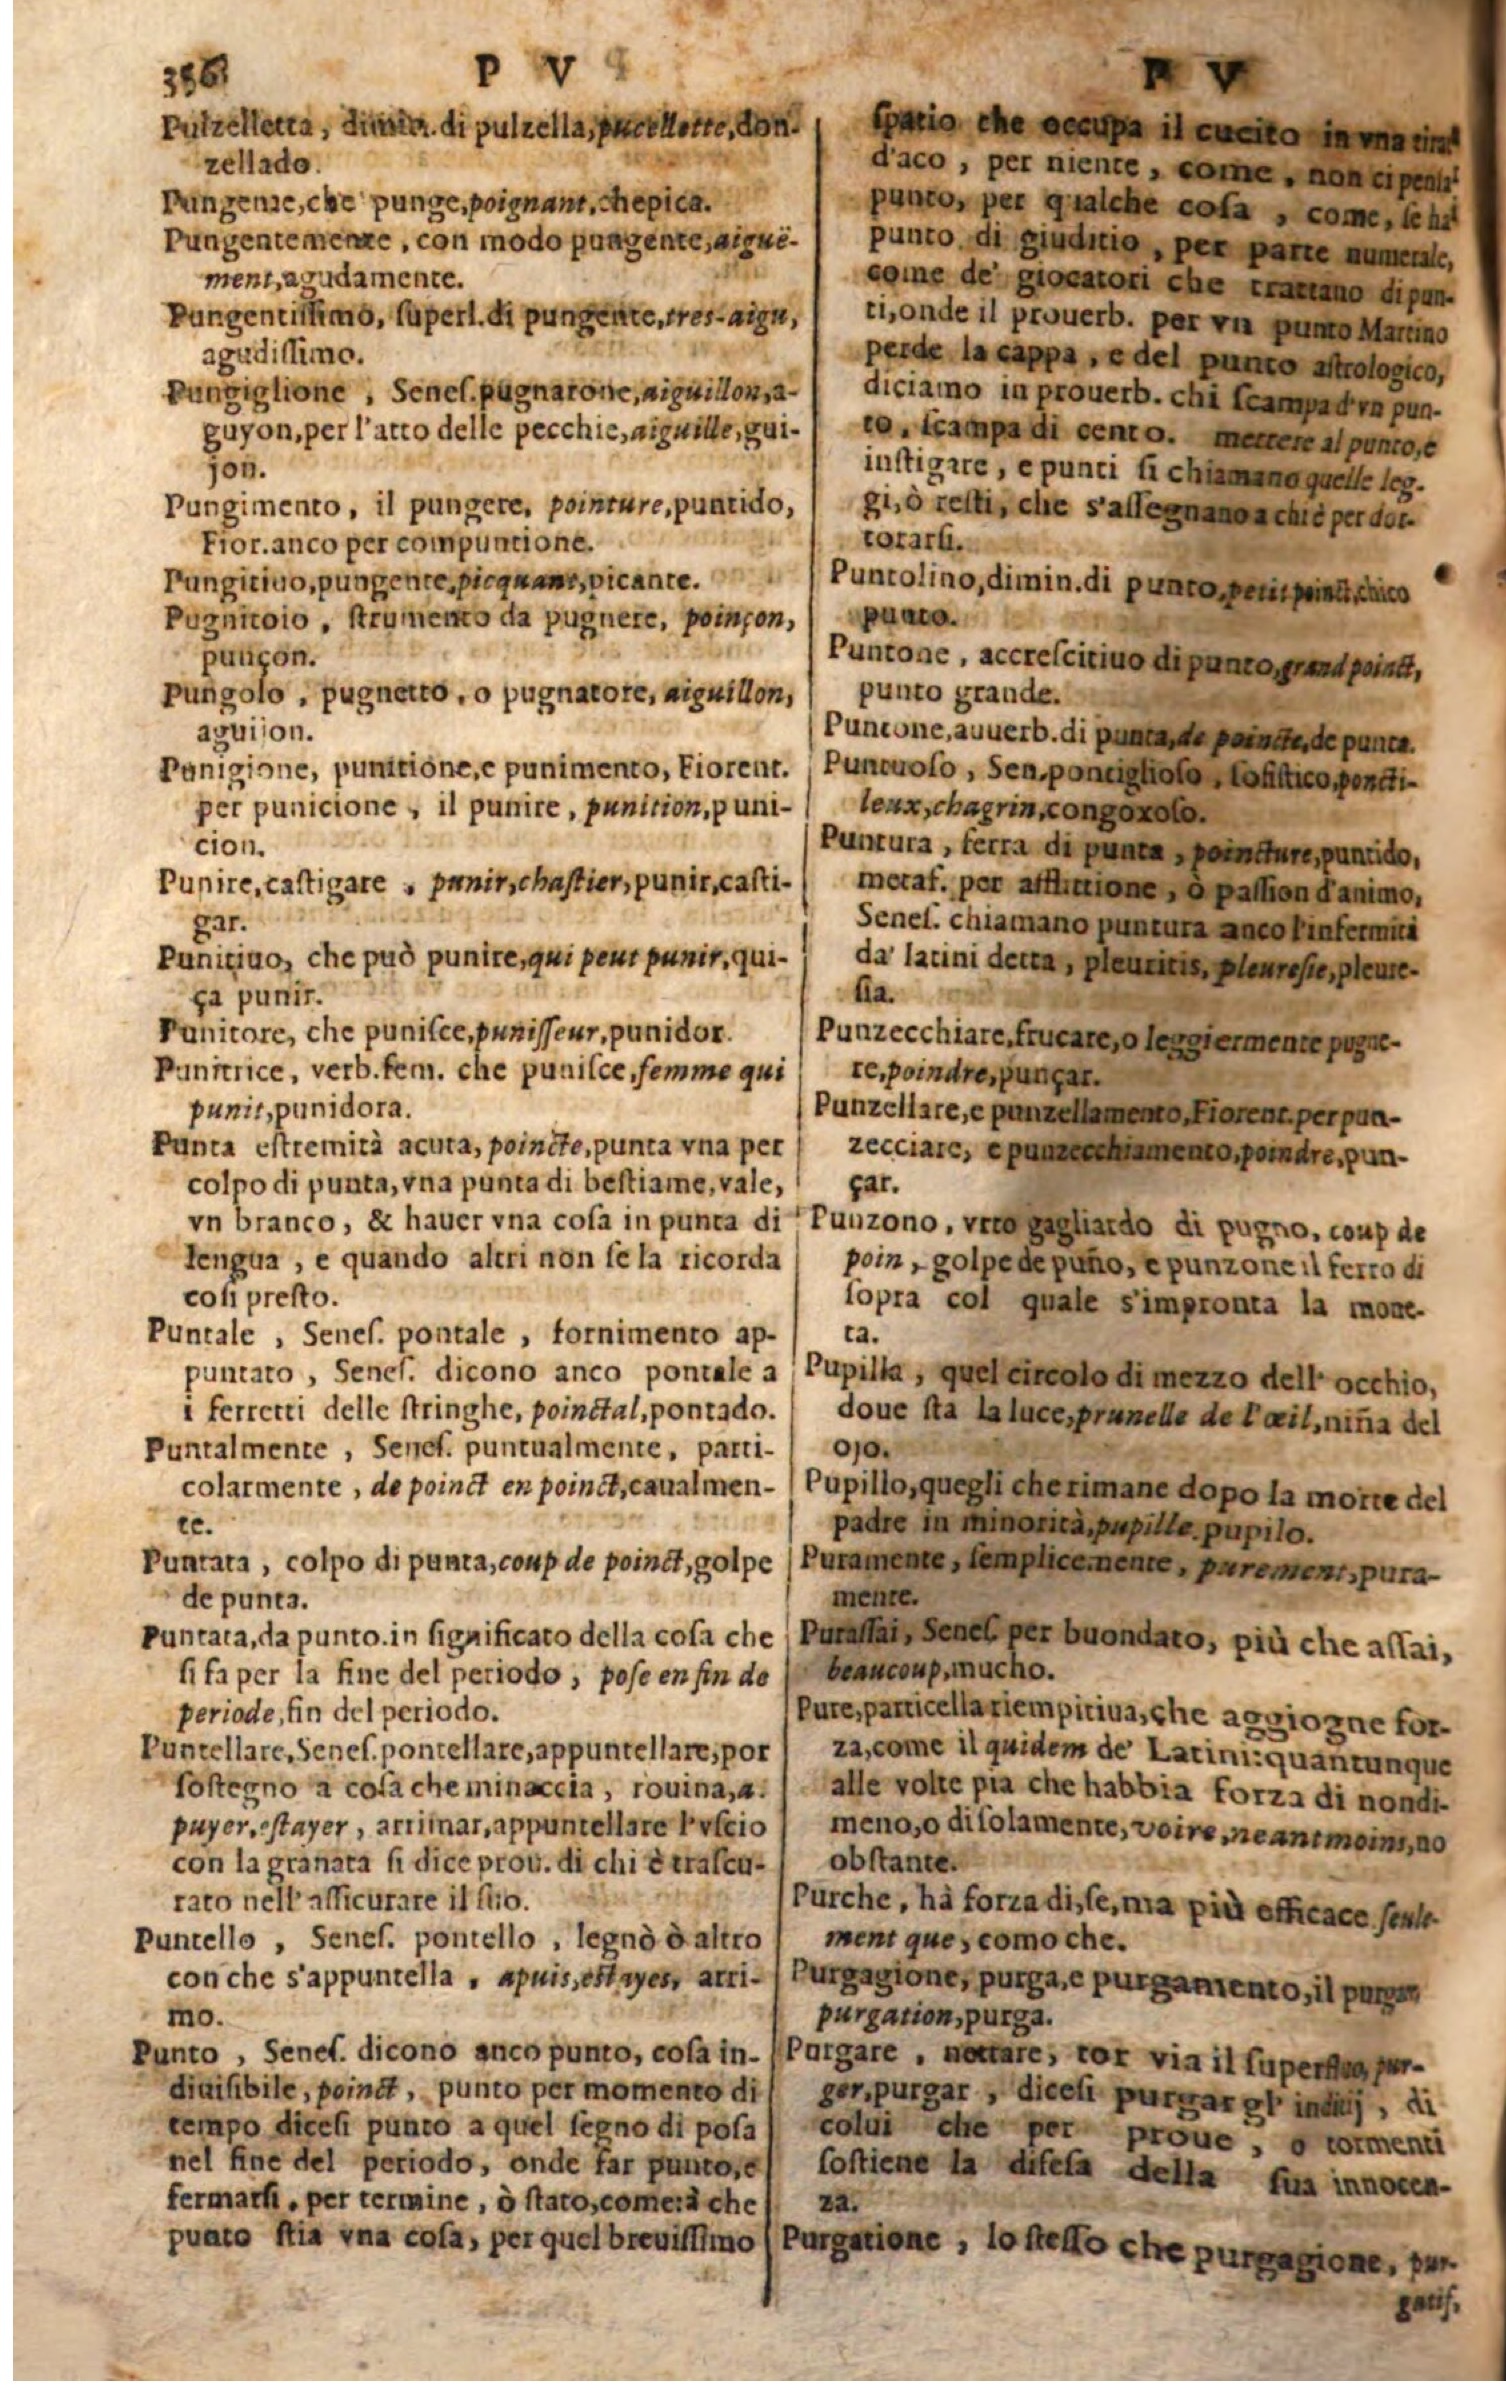 356
P V
Pulzelletta, dimin. di pulzella, pucellette, don-
zellado.
Pungente, che punge, poignant, che pica.
Pungentemente, con modo pungente, aiguë-
ment, agudamente.
Pungentissimo, superl. di pungente, tres-aigu,
agudissimo.
Pungiglione, Senes. pugnatone, aiguillon, a-
guyon, per l'atto delle pecchie, aiguille, gui-
jon.
Pungimento, il pungere, pointure, puntido,
Fior. anco per compuntione.
Pungitiuo, pungente, picquant, picante.
Pugnitoio, strumento da pugnere, poinçon,
punçon.
Pungolo, pugnetto, o pugnatore, aiguillon,
aguijon.
Punigione, punitione, e punimento, Fiorent.
per punicione, il punire, punition, puni-
cion.
Punire, castigare, punir, chastier, punir, casti-
gar.
Punitiuo, che può punire, qui peut punir, qui-
ça punir.
Punitore, che punisce, punisseur, punidor.
Punitrice, verb. fem. che punisce, femme qui
punit, punidora.
Punta estremità acuta, poincte, punta vna per
colpo di punta, vna punta di bestiame, vale,
vn branco, & hauer vna cosa in punta di
lengua, e quando altri non se la ricorda
cosi presto.
Puntale, Senes. pontale, fornimento ap-
puntato, Senes. dicono anco pontale a
i ferretti delle stringhe, poinctal, pontado.
Puntalmente, Senes. puntualmente, parti-
colarmente, de poinct en poinct, caualmen-
te.
Puntata, colpo di punta, coup de poinct, golpe
de punta.
Puntata, da punto. in significato della cosa che
si fa per la fine del periodo, pose en fin de
periode, fin del periodo.
Puntellare, Senes. pontellare, appuntellare, por
sostegno a cosa che minaccia, rouina, a.
puyer, estayer, arrimar, appuntellare l'vscio
con la granata si dice prou. di chi è trascu-
rato nell'assicurare il suo.
Puntello, Senes. pontello, legnò ò altro
con che s'appuntella, apuis, estayes, arri-
mo.
Punto, Senes. dicono anco punto, cosa in-
diuisibile, poinct, punto per momento di
tempo dicesi punto a quel segno di posa
nel fine del periodo, onde far punto, e
fermarsi, per termine, ò stato, come: à che
punto stia vna cosa, per quel breuissimo
P V
spatio che occupa il cucito in vna tira
d'aco, per niente, come, non ci pensa
punto, per qualche cosa, come, se hà
punto di giuditio, per parte numerale,
come de' giocatori che trattano di pun-
ti, onde il prouerb. per vn punto Martino
perde la cappa, e del punto astrologico,
diciamo in prouerb. chi scampa d'vn pun-
to, scampa di cento. mettere al punto, e
instigare, e punti si chiamano quelle leg-
gi, ò resti, che s'assegnano a chi è per dot-
torarsi.
Puntolino, dimin. di punto, petit poinct, chico
punto.
Puntone, accrescitiuo di punto, grand poinct,
punto grande.
Puntone, auuerb. di punta, de poincte, de punta.
Puntuoso, Sen. pontiglioso, sofistico, poncti-
leux, chagrin, congoxoso.
Puntura, ferra di punta, poincture, puntido,
metaf. per afflittione, ò passion d'animo,
Senes. chiamano puntura anco l'infermità
da' latini detta, pleuritis, pleuresie, pleure-
sia.
Punzecchiare, frucare, o leggiermente pugne-
re, poindre, punçar.
Punzellare, e punzellamento, Fiorent. per pun-
zecciare, e punzecchiamento, poindre, pun-
çar.
Punzono, vrto gagliardo di pugno, coup de
poin, golpe de puño, e punzone il ferro di
sopra col quale s'impronta la mone-
ta.
Pupilla, quel circolo di mezzo dell'occhio,
doue sta la luce, prunelle de l'œil, niña del
ojo.
Pupillo, quegli che rimane dopo la morte del
padre in minorità, pupille. pupilo.
Puramente, semplicemente, purement, pura-
mente.
Purassai, Senes. per buondato, più che assai,
beaucoup, mucho.
Pure, particella riempitiua, che aggiogne for-
za, come il quidem de' Latini: quantunque
alle volte pia che habbia forza di nondi-
meno, o di solamente, voire, neantmoins, no
obstante.
Purche, hà forza di, se, ma più efficace seule-
ment que, como che.
Purgagione, purga, e purgamento, il purgar
purgation, purga.
Purgare, nettare, tor via il superfluo, pur-
ger, purgar, dicesi purgar gl' inditij, di
colui che per proue, o tormenti
sostiene la difesa della sua innocen-
za.
Purgatione, lo stesso che purgagione, pur-
gatif,